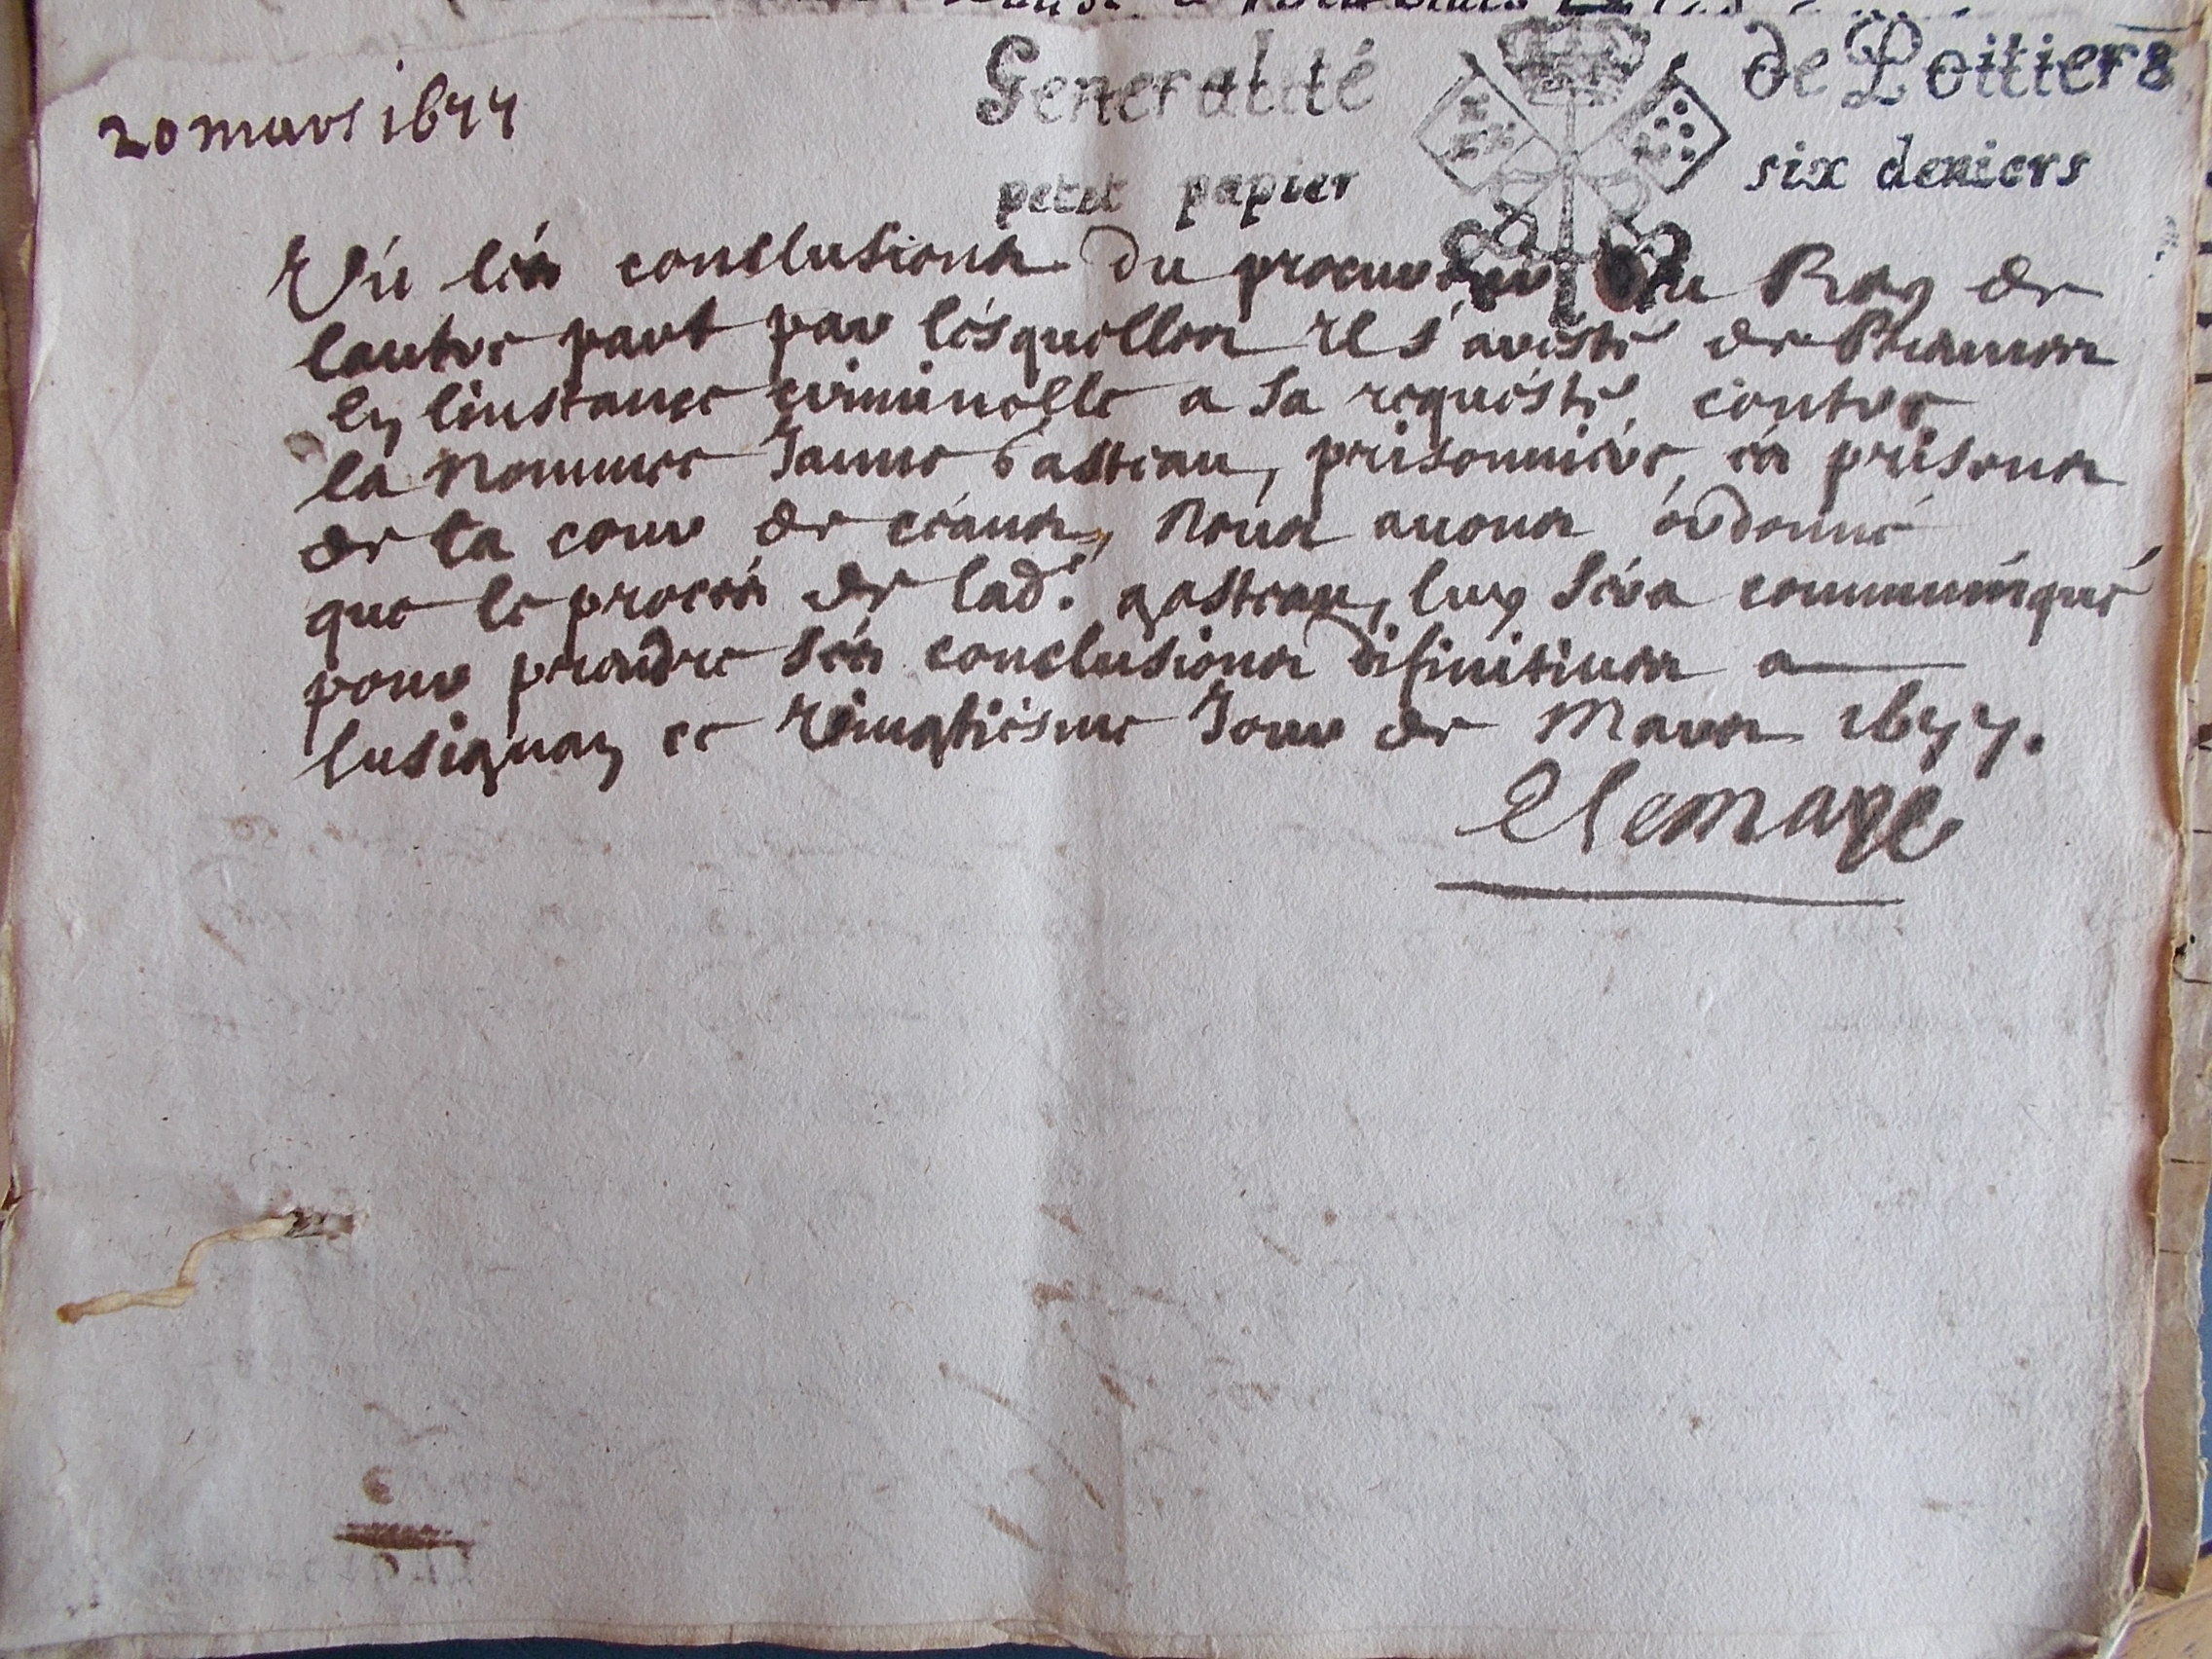 20 mars 1677
Generalité de Poitiers
petit papier six deniers
Veu les conclusions du procureur du Roy de
lautre part par lesquelles Il s'areste de
en linstance criminelle a sa requeste, contre
la nommee Janne Gasteau, prisonniere, es prisons
de la cour de ceans, Nous auons ordonné
que le proces de lad.e gasteau, luy sera communiqué
pour prendre ses conclusions difinitiues a
lusignan ce Vingtiesme Jour de Mars 1677.
Clemage